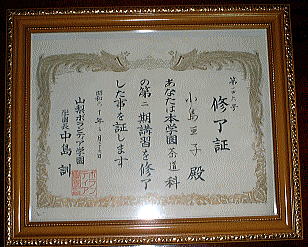 修了証
小島 子 殿
あなたは本学園茶道科
の第二期講習を修了
した事を証します
昭和 年 月 日
山梨ボランティア学園
中島 訓